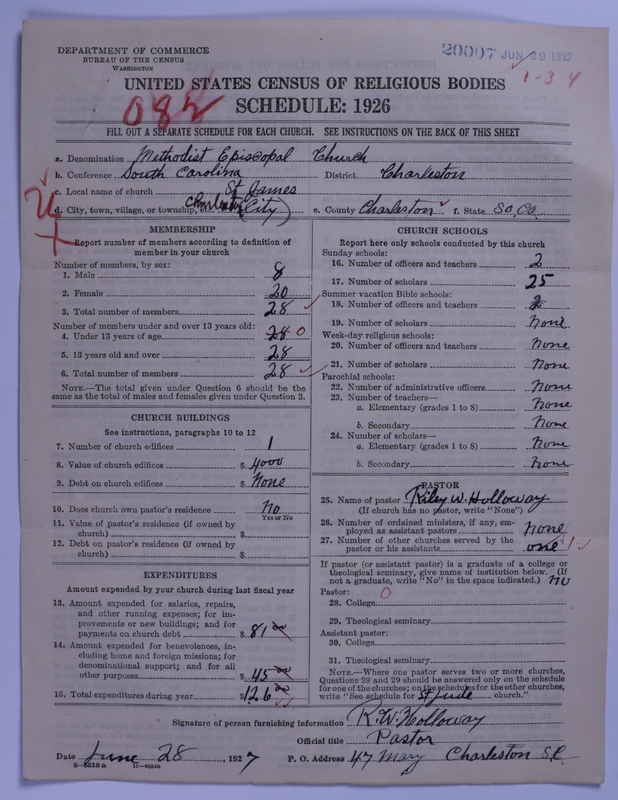 DEPARTMENT OF COMMERCE
BUREAU OF THE CENSUS
WASHINGTON
20097 JUN 29 1922
1-3 4
UNITED STATES CENSUS OF RELIGIOUS BODIES
SCHEDULE: 1926
082
FILL OUT A SEPARATE SCHEDULE FOR EACH CHURCH. SEE INSTRUCTIONS ON THE BACK OF THIS SHEET
a. Denomination Methodist Episcopal Church
b. Conference South Carolina District Charleston
c. Local name of church St James
d. City, town, village, or township, etc. Charleston (City) e. County Charleston f. State So. Ca.
MEMBERSHIP
Report number of members according to definition of
member in your church
Number of members, by sex:
1. Male 8
2. Female 20
3. Total number of members 28
Number of members under and over 13 years old:
4. Under 13 years of age 28 0
5. 13 years old and over 28
6. Total number of members 28
NOTE.—The total given under Question 6 should be the
same as the total of males and females given under Question 3.
CHURCH BUILDINGS
See instructions, paragraphs 10 to 12
7. Number of church edifices 1
8. Value of church edifices $ 4000
9. Debt on church edifices $ None
10. Does church own pastor's residence No
Yes or No
11. Value of pastor's residence (if owned by
church) $
12. Debt on pastor's residence (if owned by
church) $
EXPENDITURES
Amount expended by your church during last fiscal year
13. Amount expended for salaries, repairs,
and other running expenses; for im-
provements or new buildings; and for
payments on church debt $ 81 00
14. Amount expended for benevolences, in-
cluding home and foreign missions; for
denominational support; and for all
other purposes $ 45 00
15. Total expenditures during year $ 126 00
CHURCH SCHOOLS
Report here only schools conducted by this church
Sunday schools:
16. Number of officers and teachers 2
17. Number of scholars 25
Summer vacation Bible schools:
18. Number of officers and teachers
19. Number of scholars None
Week-day religious schools:
20. Number of officers and teachers None
21. Number of scholars None
Parochial schools:
22. Number of administrative officers None
23. Number of teachers—
a. Elementary (grades 1 to 8) None
b. Secondary None
24. Number of scholars—
a. Elementary (grades 1 to 8) None
b. Secondary None
PASTOR
25. Name of pastor Riley W. Holloway
(If church has no pastor, write "None")
26. Number of ordained ministers, if any, em-
ployed as assistant pastors None
27. Number of other churches served by the
pastor or his assistants one 1
If pastor (or assistant pastor) is a graduate of a college or
theological seminary, give name of institution below. (If
not a graduate, write "No" in the space indicated.) No
Pastor: 0
28. College
29. Theological seminary
Assistant pastor:
30. College
31. Theological seminary
NOTE.—Where one pastor serves two or more churches,
Questions 28 and 29 should be answered only on the schedule
for one of the churches; on the schedules for the other churches,
write "See schedule for St Jude church."
Signature of person furnishing information R. W. Holloway
Official title Pastor
Date June 28, 1927 P. O. Address 47 Mary Charleston S.C.
8-5519a